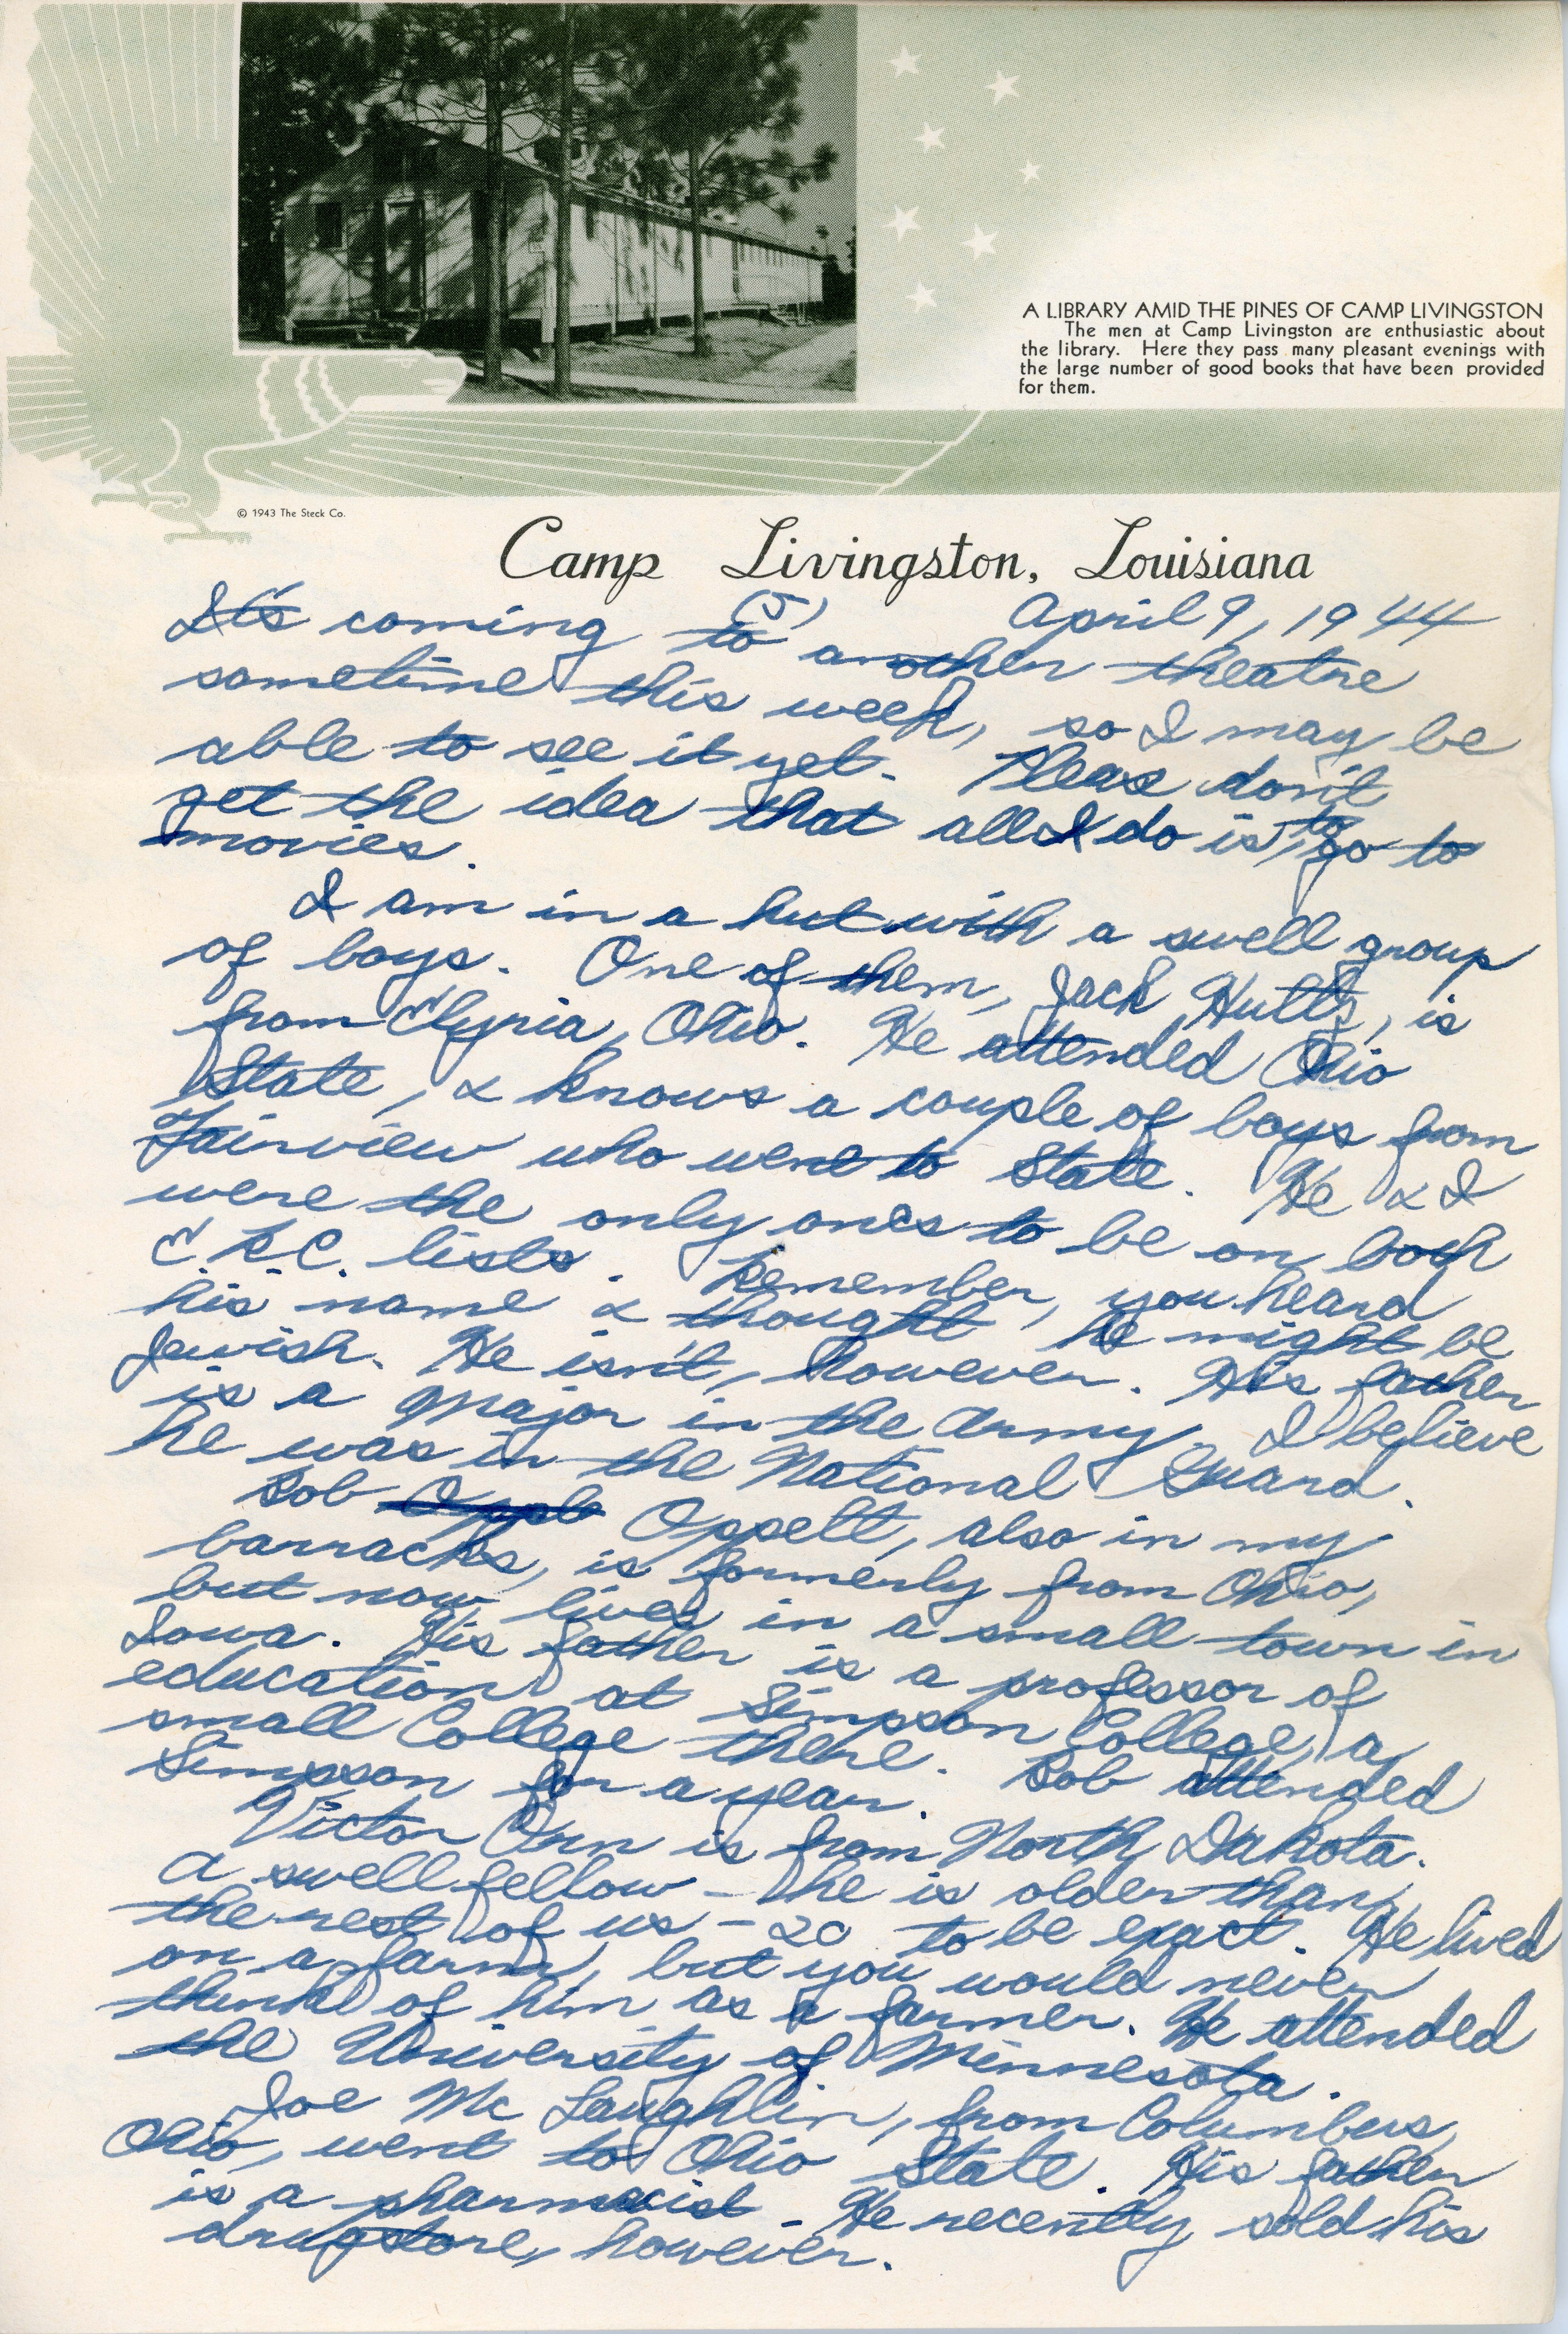 A LIBRARY AMID THE PINES OF CAMP LIVINGSTON
The men at Camp Livingston are enthusiastic about
the library. Here they pass many pleasant evenings with
the large number of good books that have been provided
for them.
© 1943 The Steck Co.
Camp Livingston, Louisiana
(5) April 9, 1944
It's coming to another theatre
sometime this week, so I may be
able to see it yet. Pleas don't
get the idea that all I do is to go to
movies.
I am in a hut with a swell group
of boys. One of them, Jack Hutts, is
from Elyria, Ohio. He attended Ohio
State, & knows a couple of boys from
Fairview who went to State. He & I
were the only ones to be on both
E.R.C. lists. Remember, you heard
his name & thought he might be
Jewish. He isn't, however. His father
is a Major in the Army. I believe
he was in the National Guard.
Bob Oppelt, also in my
barracks, is formerly from Ohio,
but now lives in a small town in
Iowa. His father is a professor of
education at Simpson College, a
small College there. Bob attended
Simpson for a year.
Victor is from North Dakota.
A swell fellow - he is older than
the rest of us - 20 to be exact. He lived
on a farm, but you would never
think of him as a farmer. He attended
the University of Minnesota.
Joe McLaughlin, from Columbus,
Ohio, went to Ohio State. His father
is a pharmacist. He recently sold his
drugstore, however.